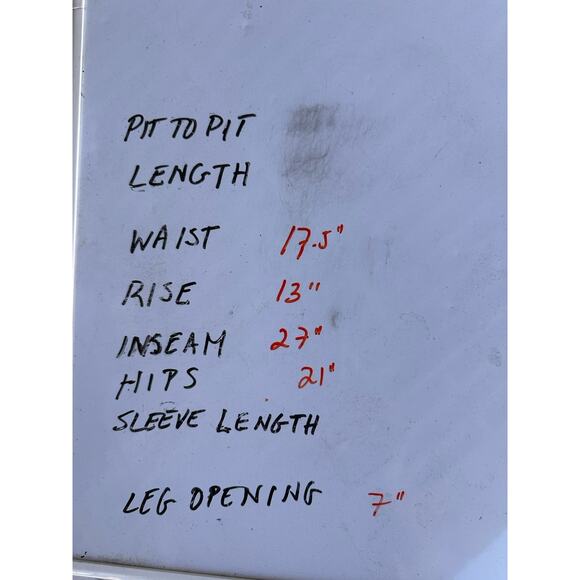 PIT TO PIT
LENGTH
WAIST 17.5"
RISE 13"
INSEAM 27"
HIPS 21"
SLEEVE LENGTH
LEG OPENING 7"